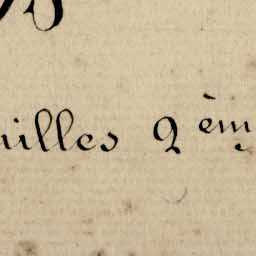 uilles 2 èm